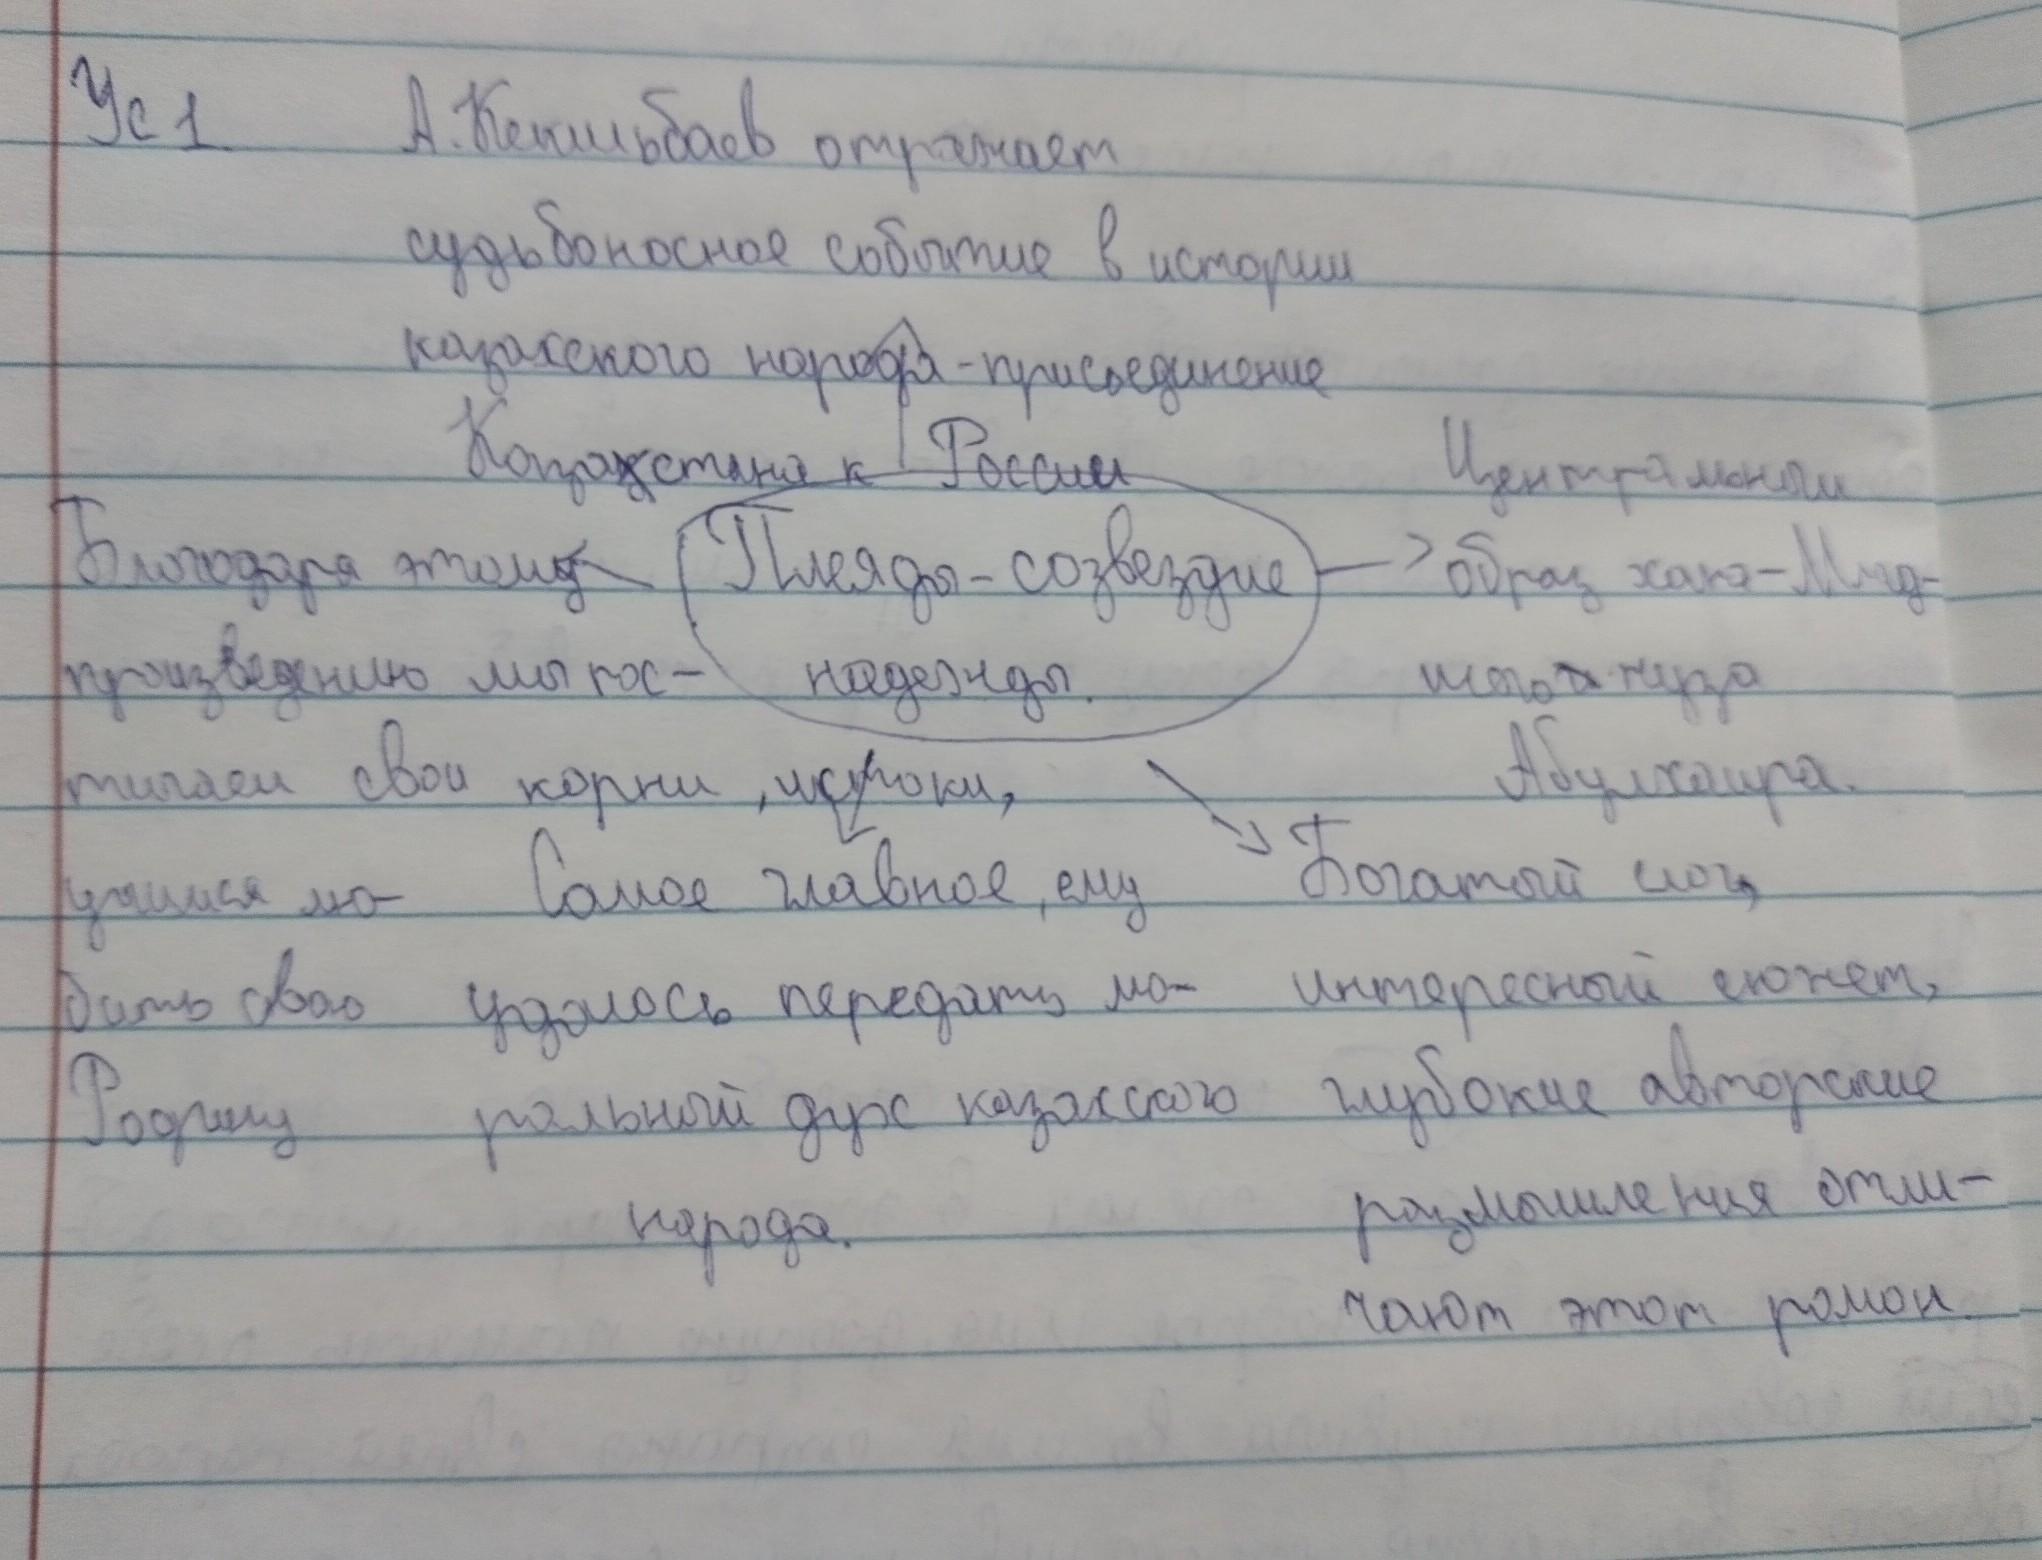 Ус 1. А. Кекильбаев отражает
судьбоносное событие в истории
казахского народа - присоединение
Казахстана к России
Плеяды - созвездие
надежды.
Центральным
образ хана - Млад-
шего жуза
Абулхаира.
Благодаря этому
произведению мы пос-
тигаем свои корни, истоки,
учимся лю-
бить свою
Родину
Самое главное, ему
удалось передать мо-
ральный дух казахского
народа.
Богатый слог,
интересный сюжет,
глубокие авторские
размышления отли-
чают этот роман.